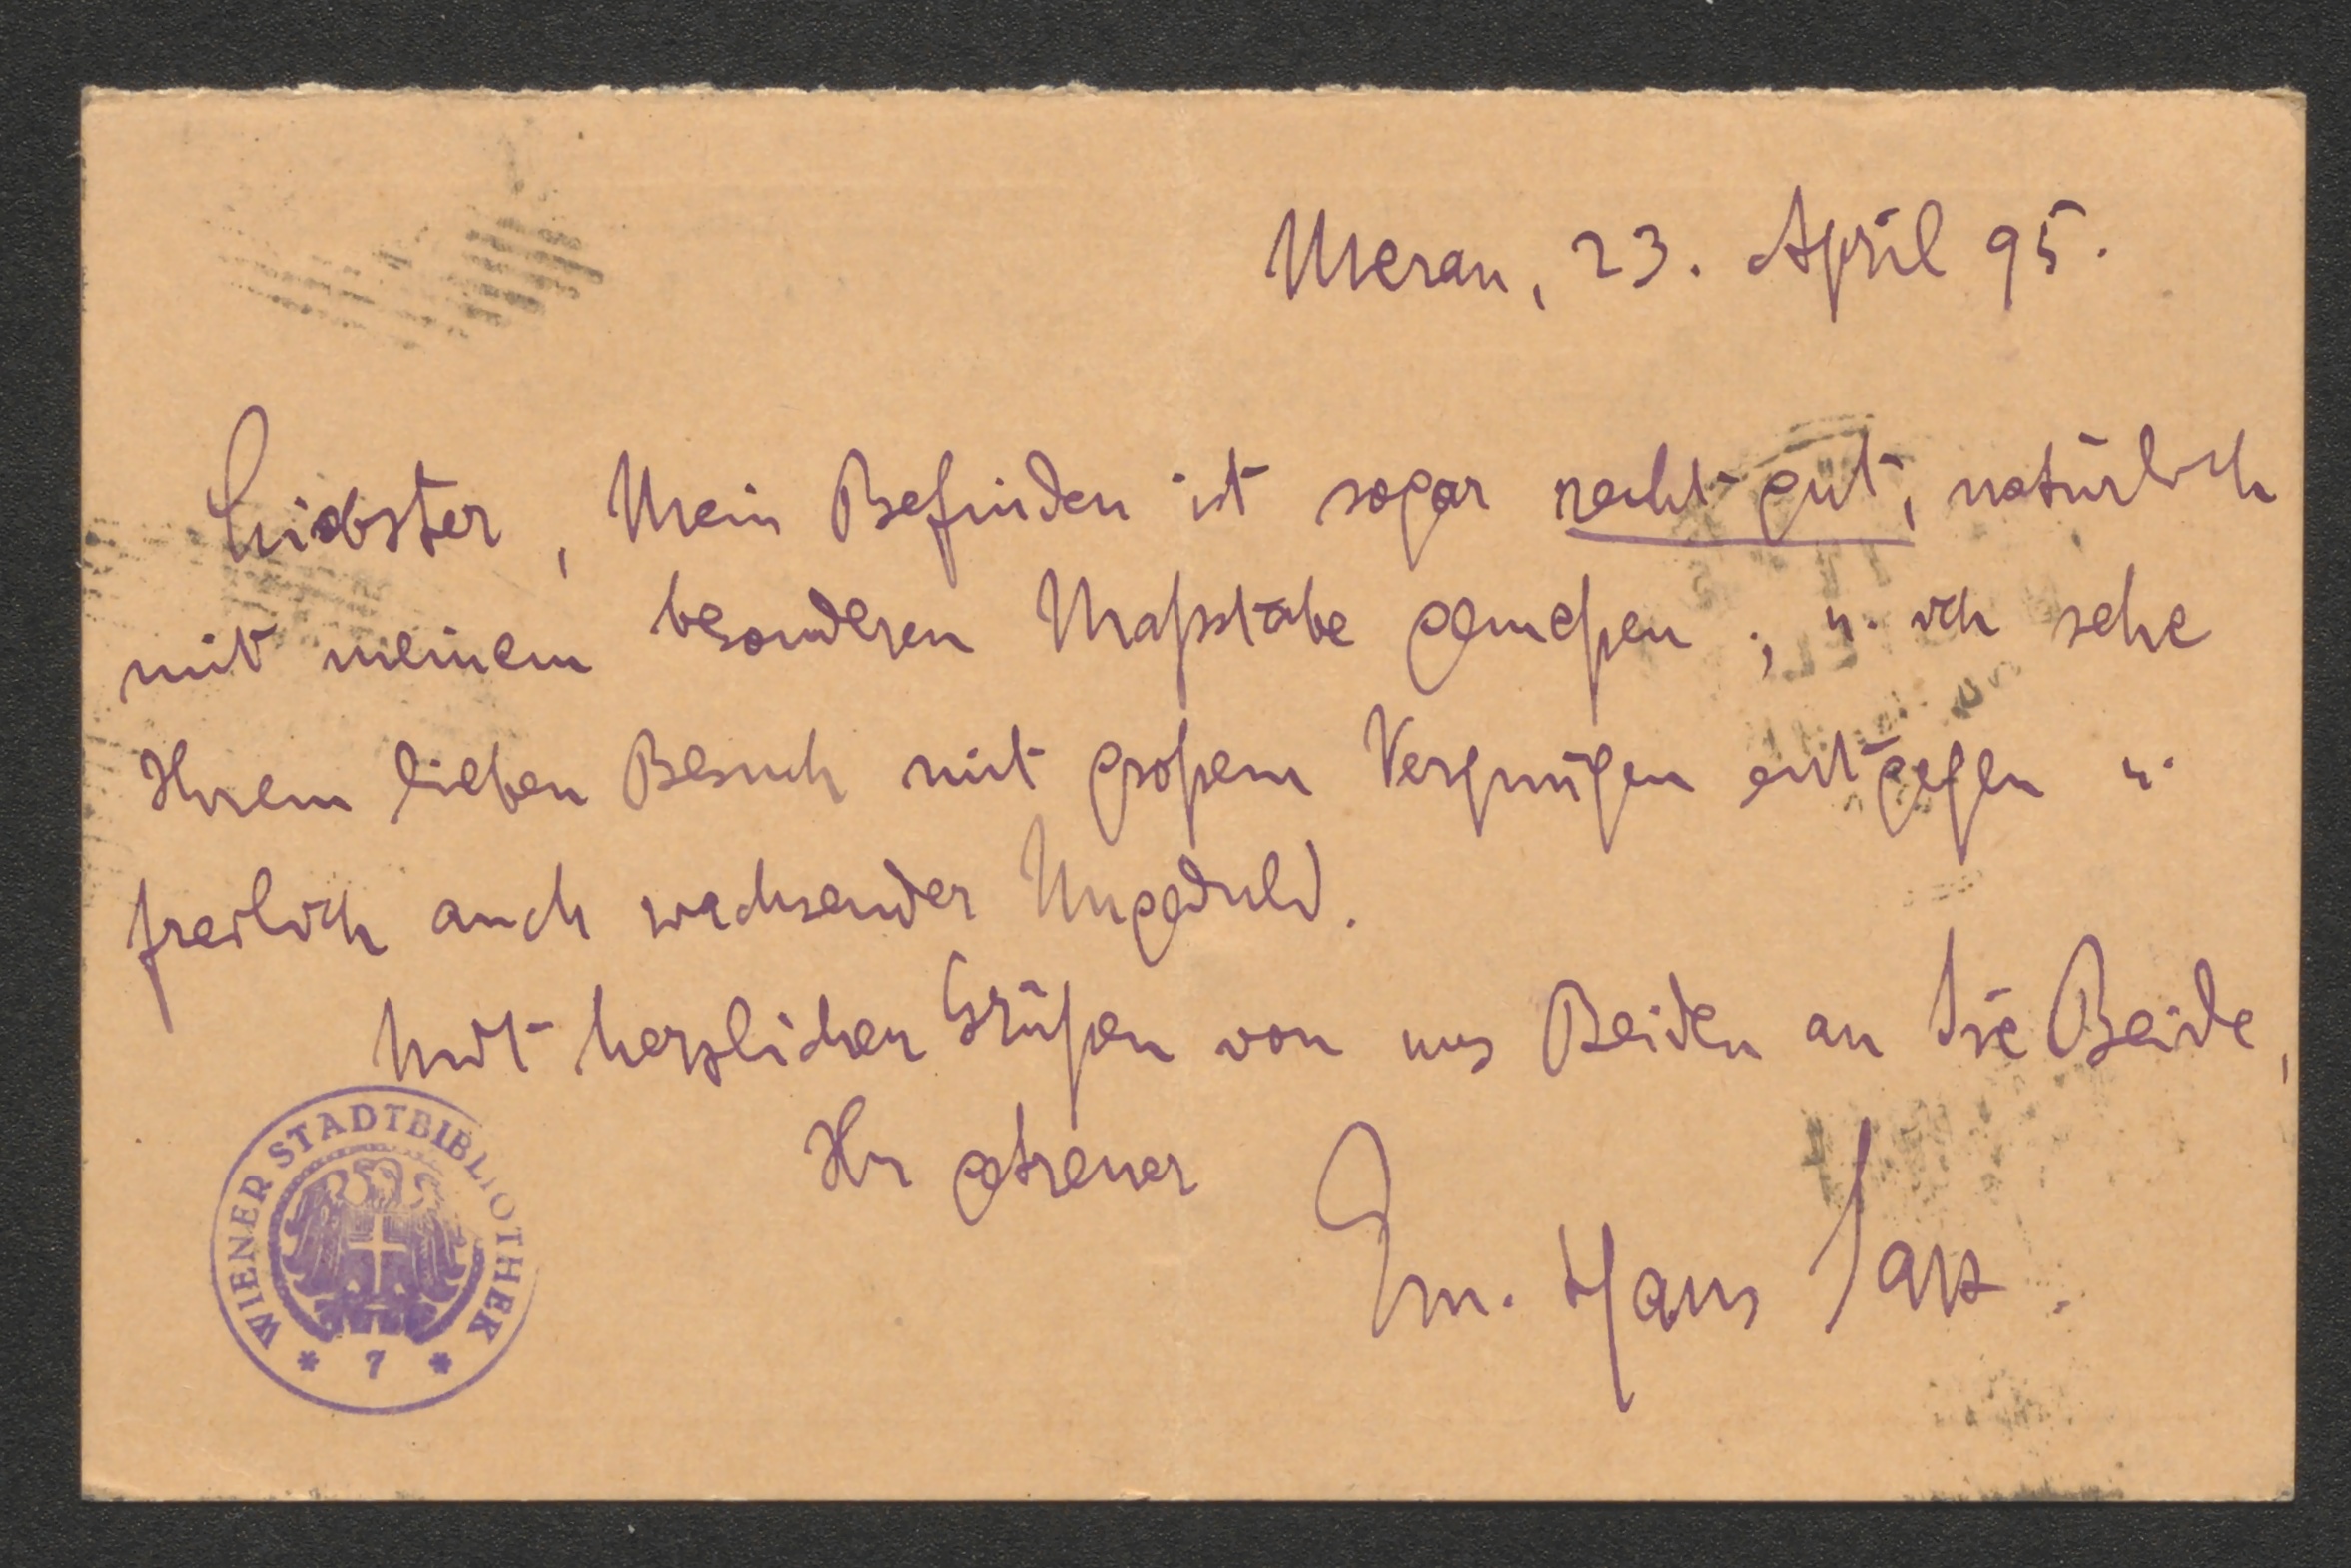 Meran, 23. April 95.
Liebster, Mein Befinden ist sogar recht gut, natürlich
mit meinem besonderen Maßstabe gemeßen; u. ich sehe
Ihrem lieben Besuch mit großem Vergnügen entgegen u.
freilich auch wachsender Ungeduld.
Mit herzlichen Grüßen von uns Beiden an Sie Beide,
Ihr getreuer
Em. Hans Sax
WIENER STADTBIBLIOTHEK
* 7 *